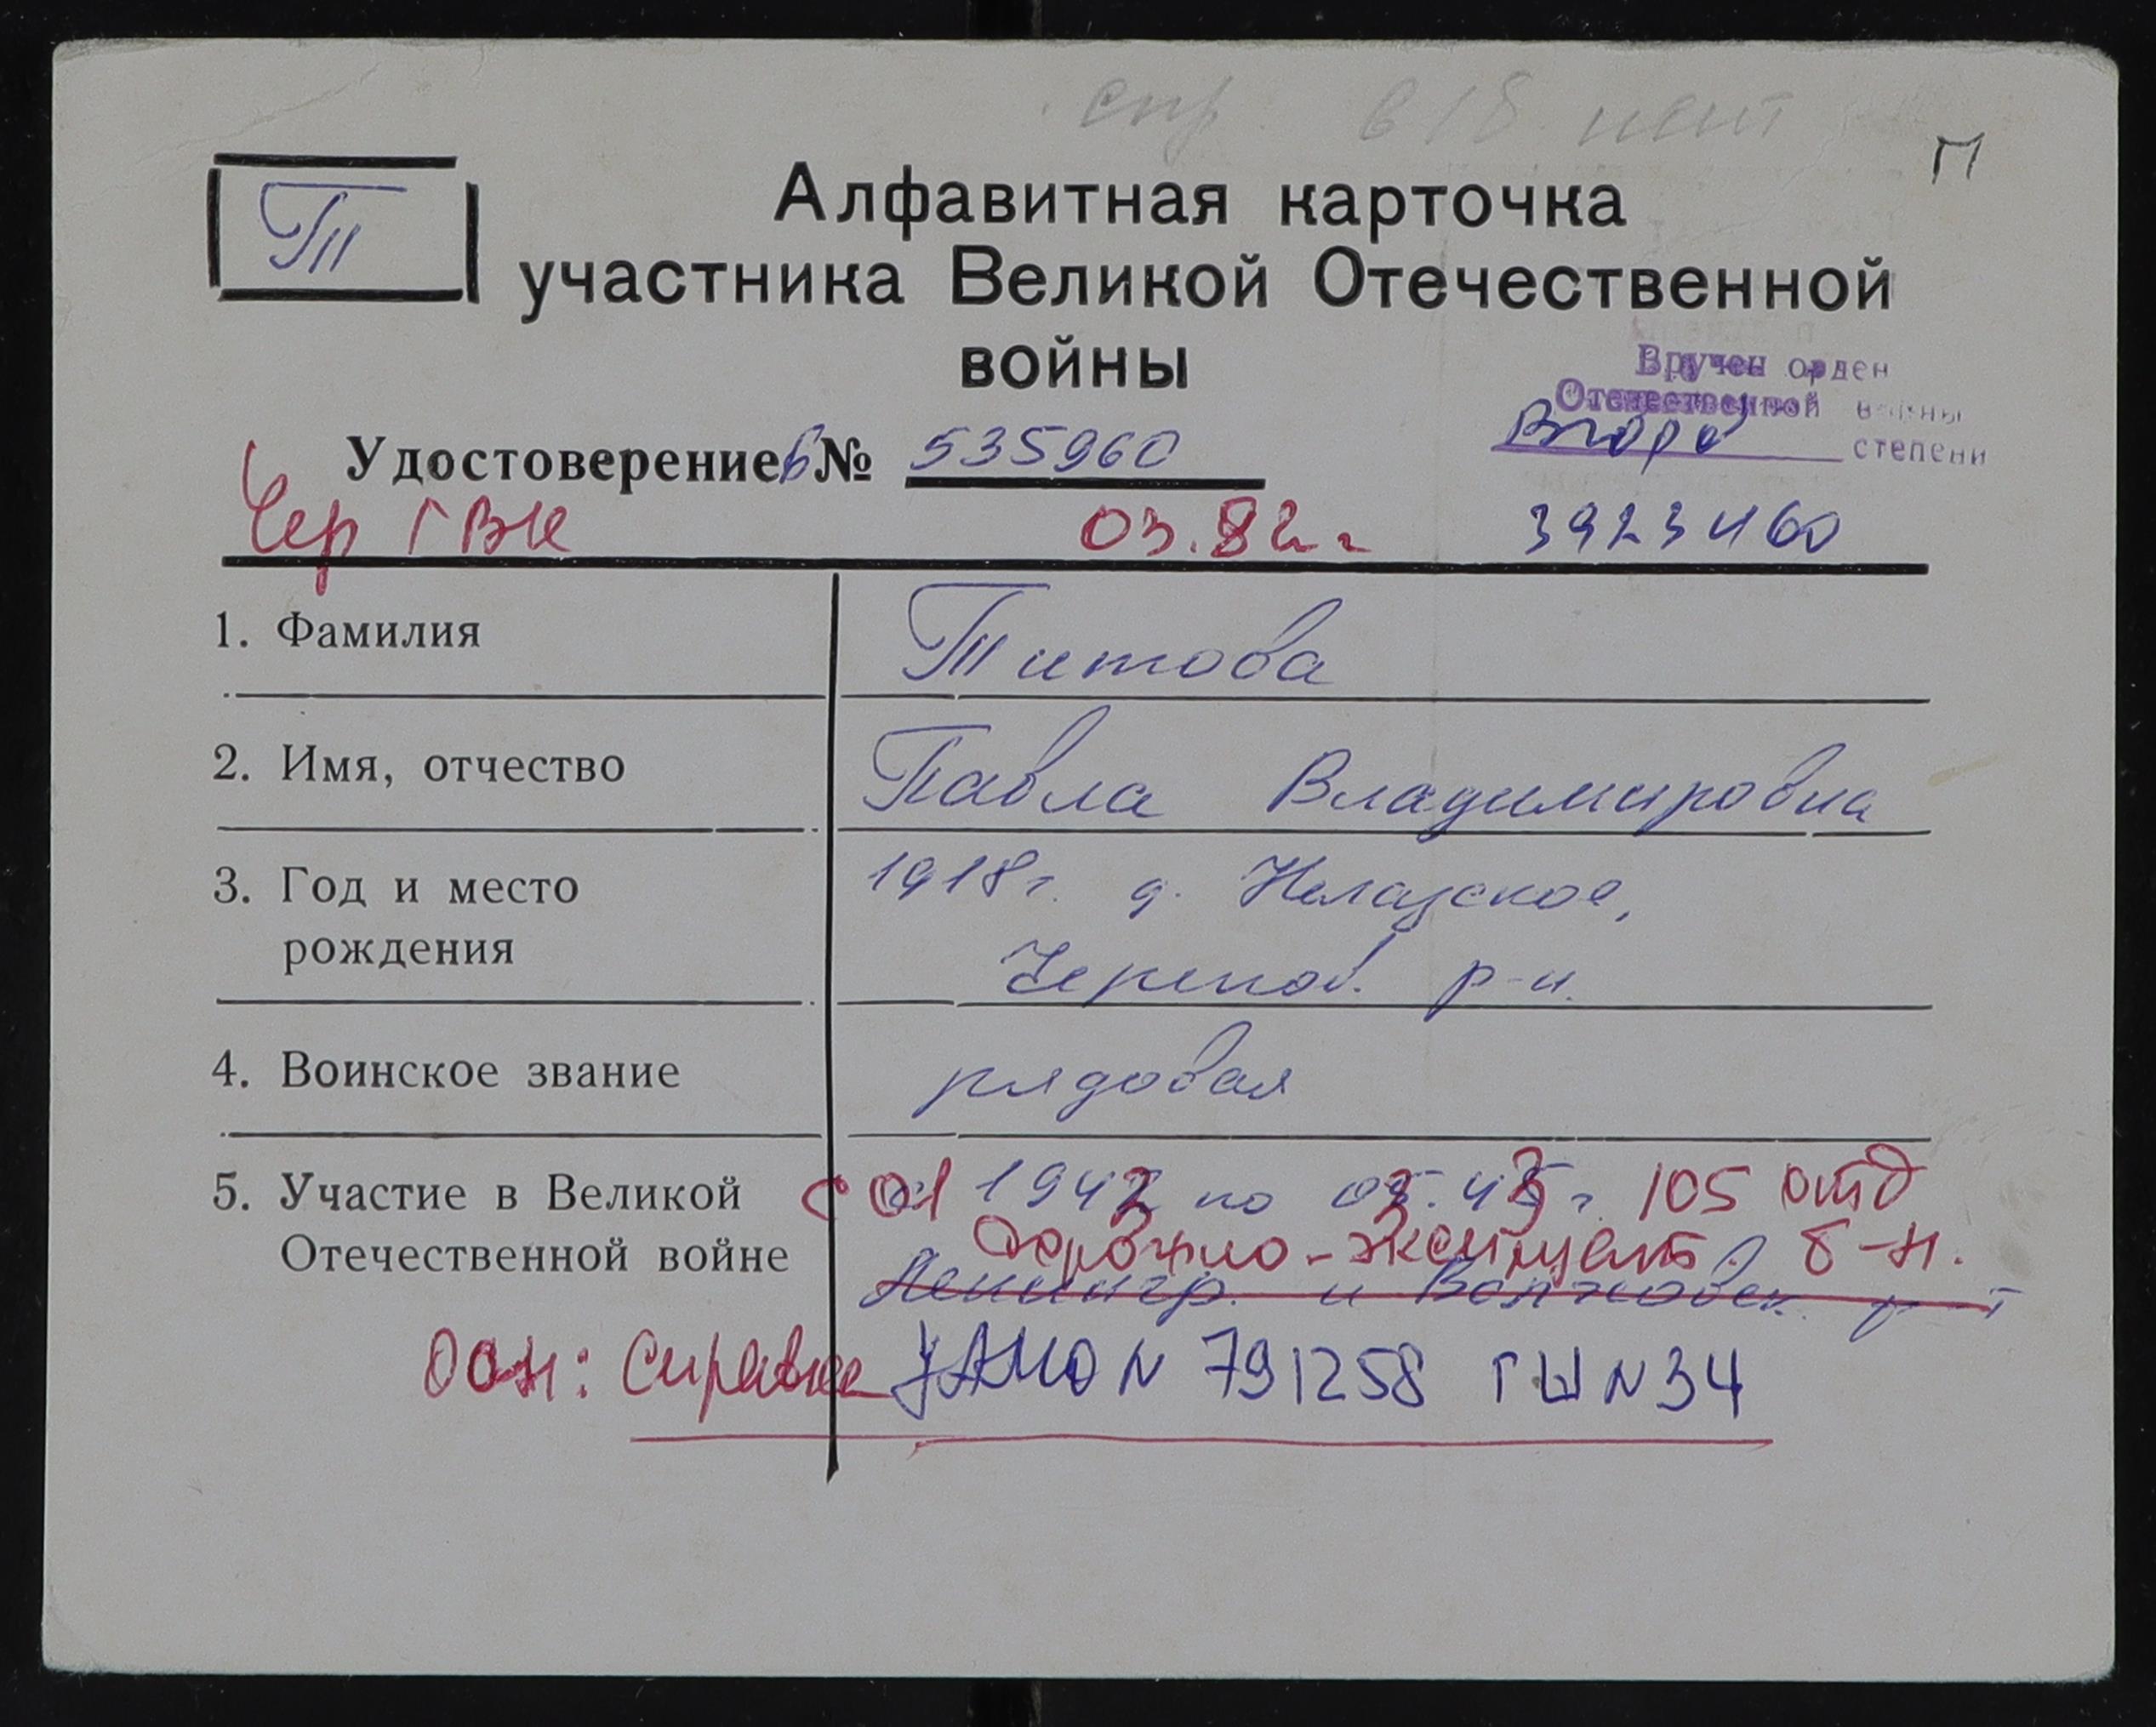 спр. в 18
П
Т
Алфавитная карточка
участника Великой Отечественной
войны
Вручен орден
Отечественной войны
Второй степени
Удостоверение Б № 535960
Чер ГВК 03.82 г
3923460
1. Фамилия Титова
2. Имя, отчество Павла Владимировна
3. Год и место 1918 г. д. Нелазское,
рождения Черепов. р-н.
4. Воинское звание рядовая
5. Участие в Великой с 01 1942 по 03.43 г. 105 отд
Отечественной войне дорожно-эксплуат. б-н.
Ленингр. и Волховск. ф-т
Осн: Справка ЦАМО N 791258 ГШ N 34